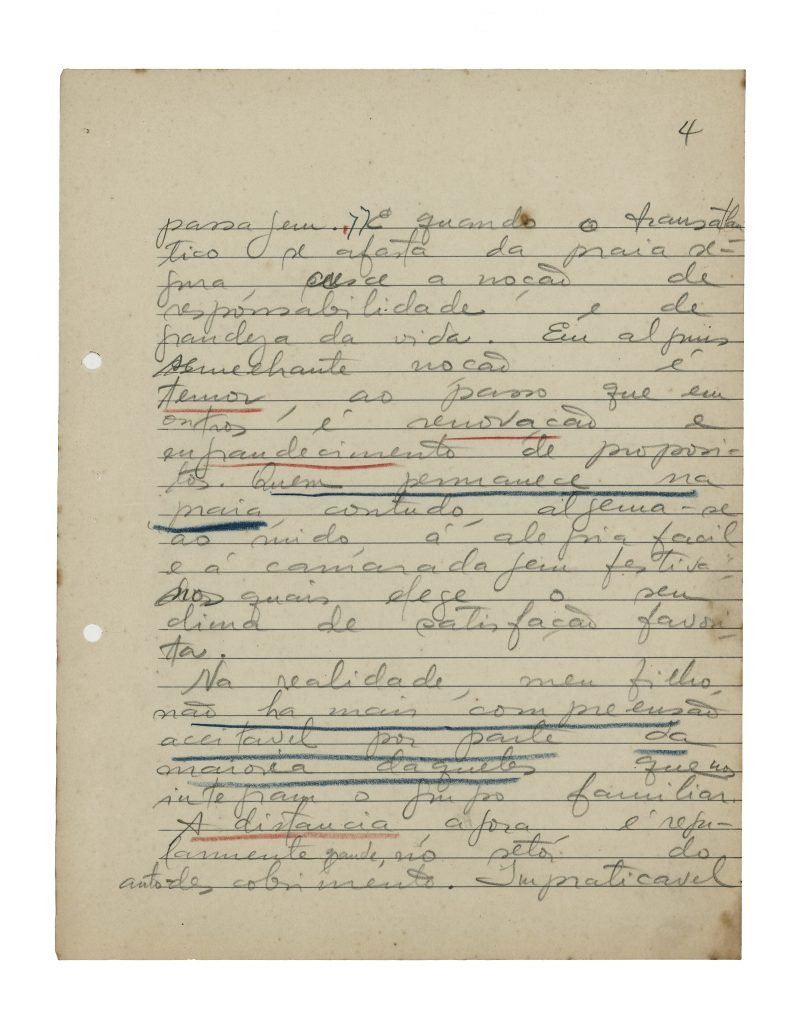 4
passagem. E quando o transatlan
tico se afasta da praia se-
gura cresce a noção de
responsabilidade e de
grandeza da vida. Em alguns
semelhante noção é
temor ao passo que em
outros é renovação e
engrandecimento de proposi-
tos. Quem permanece na
praia contudo, algema-se
ao ruido á alegria facil
e á camaradagem festiva
nos quais elege o seu
clima de satisfação favori-
ta.
Na realidade, meu filho,
não ha mais compreensão
aceitavel por parte da
maioria daqueles que nos
integram o grupo familiar.
A distancia agora é regu-
larmente grande, no setor do
auto-descobrimento. Impraticavel